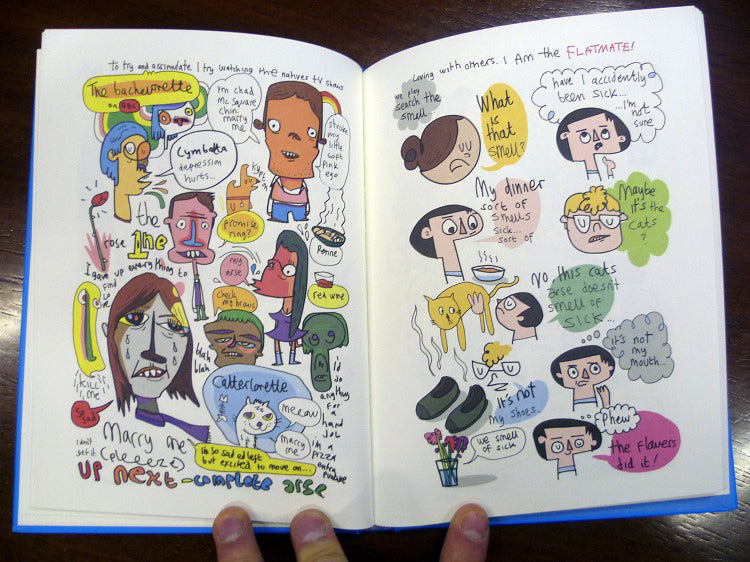 To try and assimulate I try watching the nativer tv shows
The bachelorette
on ABC
I'm chad
Mc Square
chin.
marry
me
Stroke
my
little
soft
pink
ego
Cymbalta
depression
hurts...
the
rose
1ne
promise
ring?
my
arse
check
my brows
Penne
red wine
I gave up everything to
find
love
'I kill
me
so
sad
blah
blah
Catterlorette
meeow
marry
me
I'd
do
anything
for
a
hand
job
in a
pizza
I don't
get it
Marry me
(pleeez)
I'm so sad ed left
but excited to move on...
UP next - complete arse
Living with others. I Am the FLATMATE!
we play
search the
smell
What
is
that
smell?
have I accidently
been sick...
...I'm
not
sure
My dinner
sort of
smells
sick...
sort of
Maybe
it's the
cats
?
no this cats
arse doesn't
smell of
sick
it's not
my
mouth...
it's not
my shoes
we smell
of sick
phew
the flowers
did it!